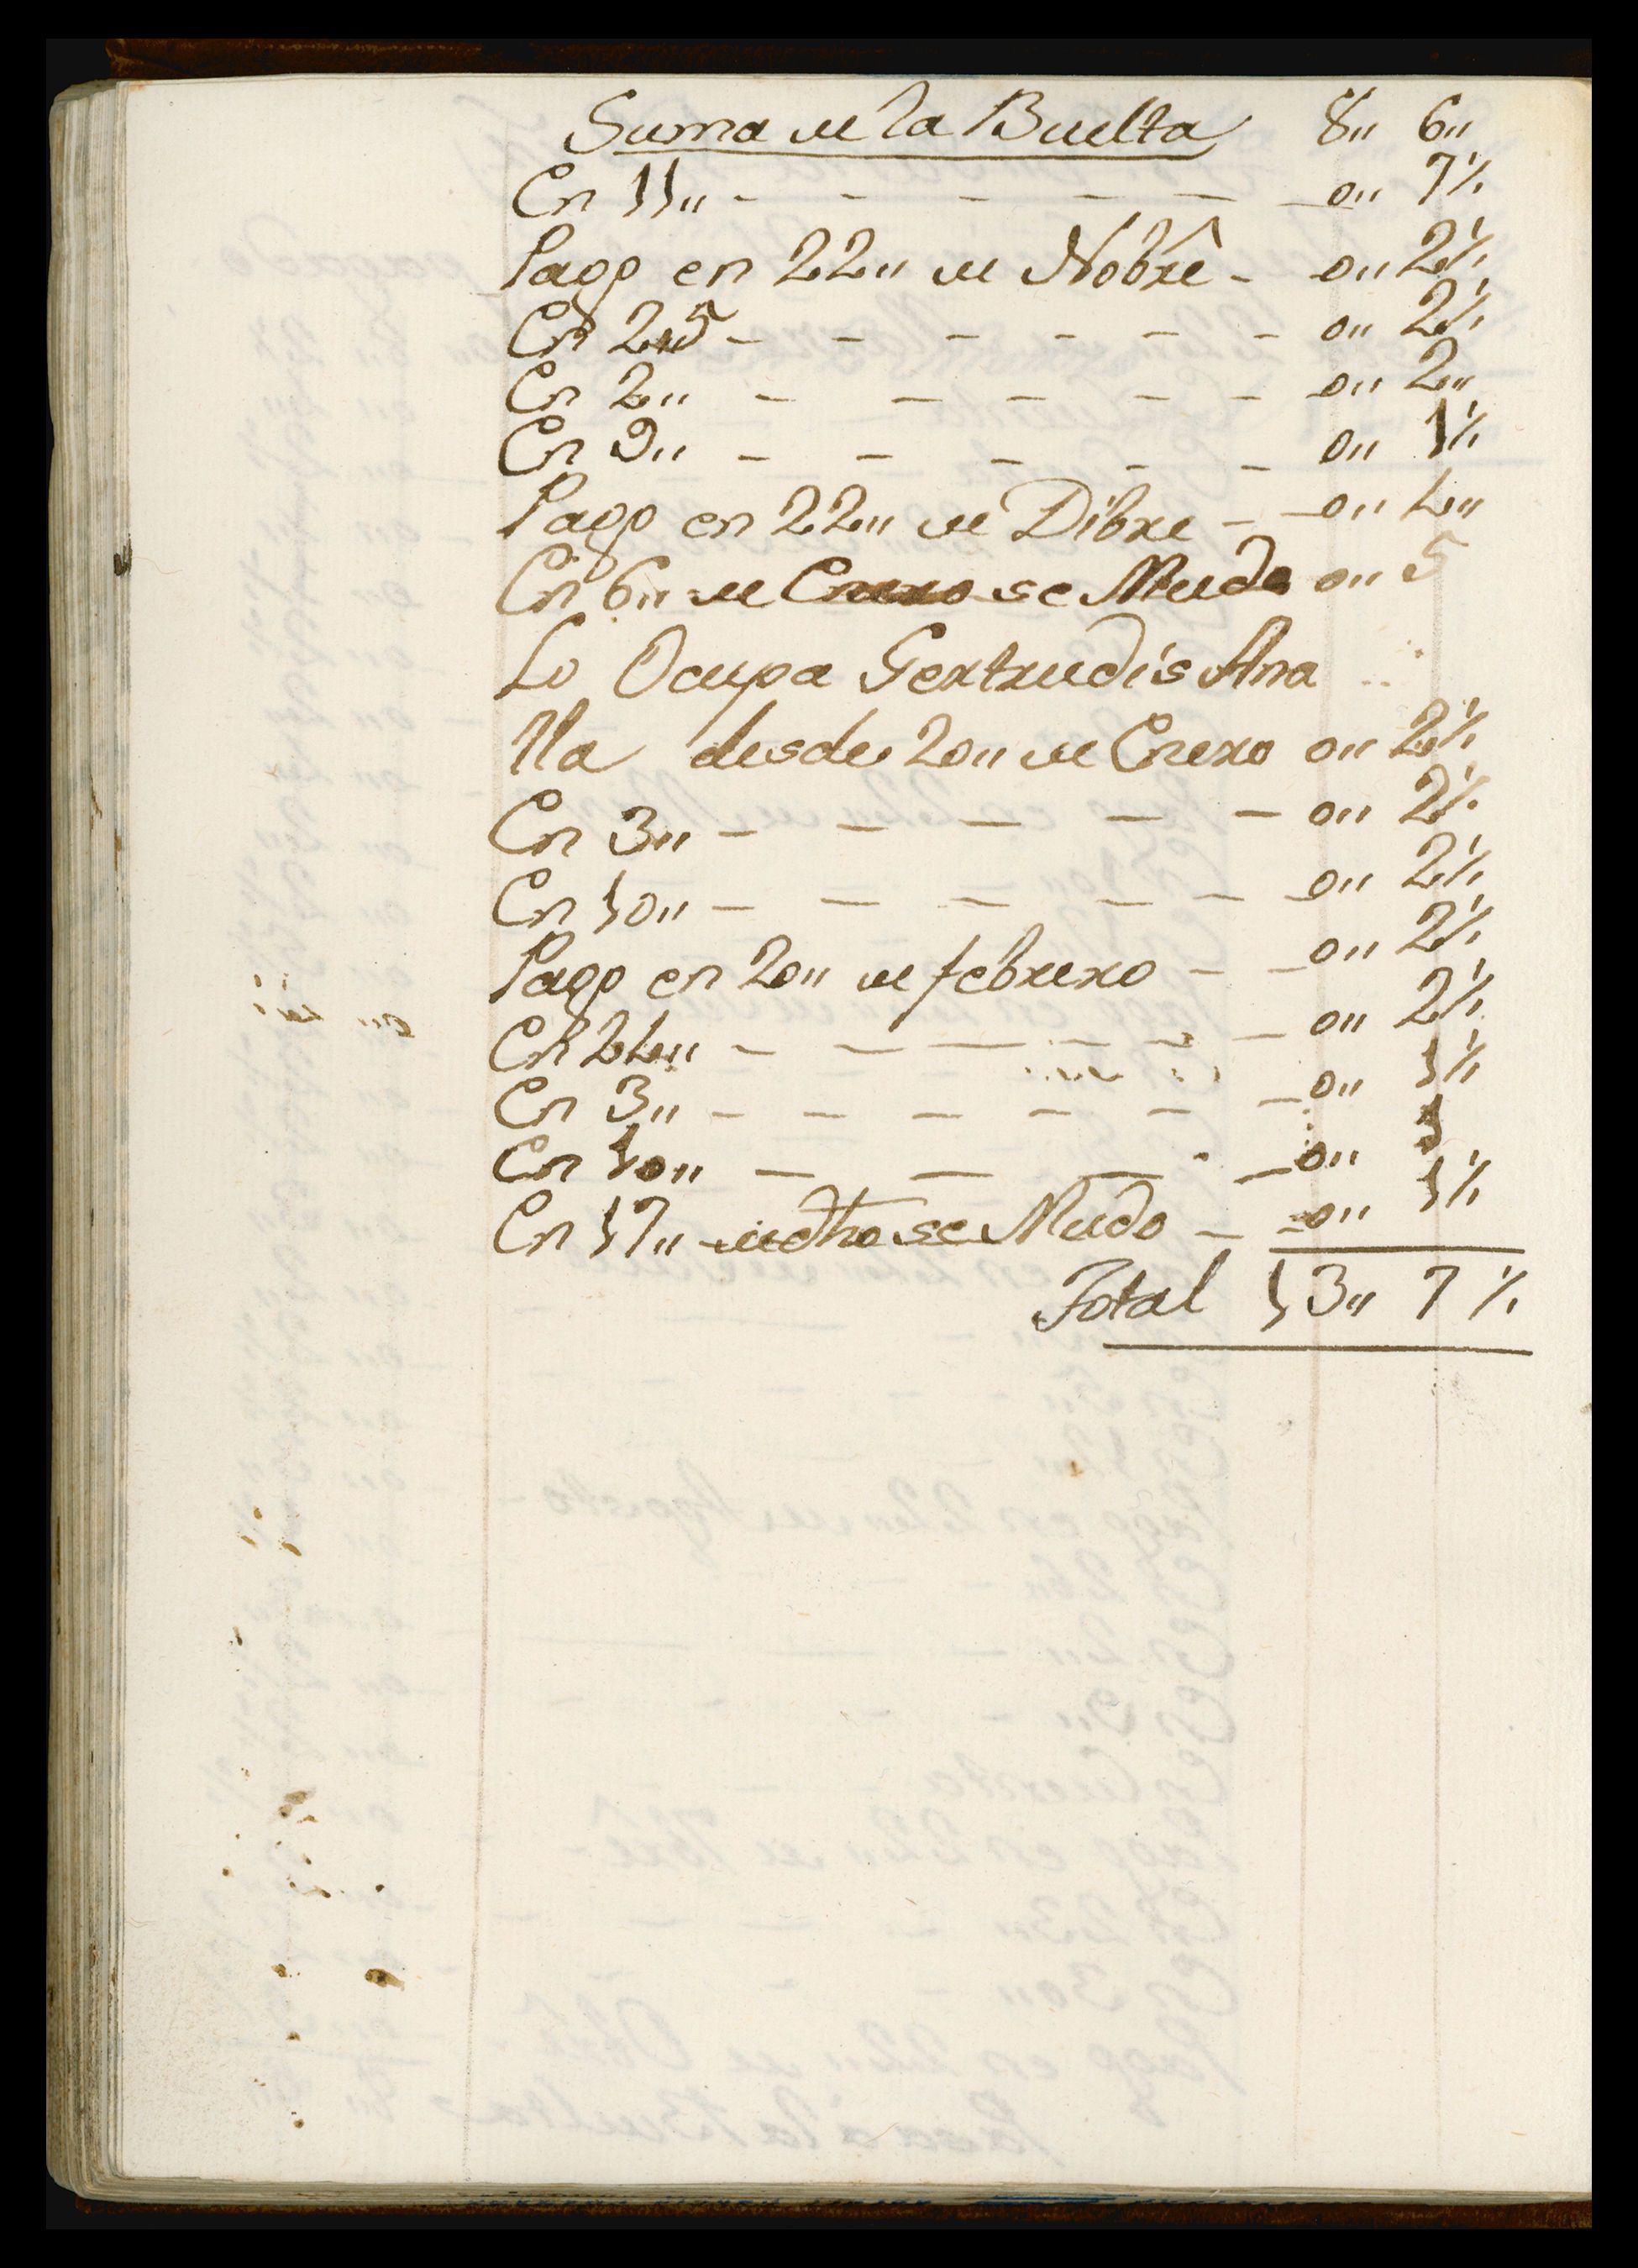 Suma de la Buelta 8,, 6,,
En 11,, - - - - - 0,, 7½
Pago en 22,, de Nobrê - 0,, 2½
En 25 - - - - - - 0,, 2½
En 2,, - - - - - 0,, 2,,
En 9,, - - - - - 0,, 1½
Pago en 22,, de Dibre - - 0,, 4,,
En 6,, de Enero se Mudo 0,, 5
Lo Ocupa Gertrudis Ana
lla desde 20,, de Enero 0,, 2½
En 3,, - - - - - 0,, 2½
En 10,, - - - - - 0,, 2½
Pago en 20,, de febrero - - 0,, 2½
En 24,, - - - - - - 0,, 2½
En 3,, - - - - - - 0,, 1½
En 10,, - - - - 0,, 1
En 17,, de dho se Mudo - - 0,, 1½
Total 13,, 7½